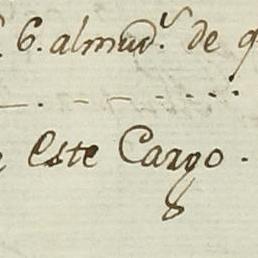 6. almud.s de
Este Cargo.